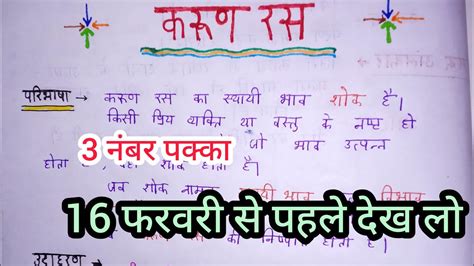 करूण रस
परिभाषा → करूण रस का स्थायी भाव शोक है।
किसी प्रिय व्यक्ति या वस्तु के नष्ट हो
3 नंबर पक्का
जो भाव उत्पन्न
होता है, वही शोक होता है।
जब शोक नामक स्थायी भाव विभाव
16 फरवरी से पहले देख लो
रस की निष्पत्ति होता है।
उदाहरण →